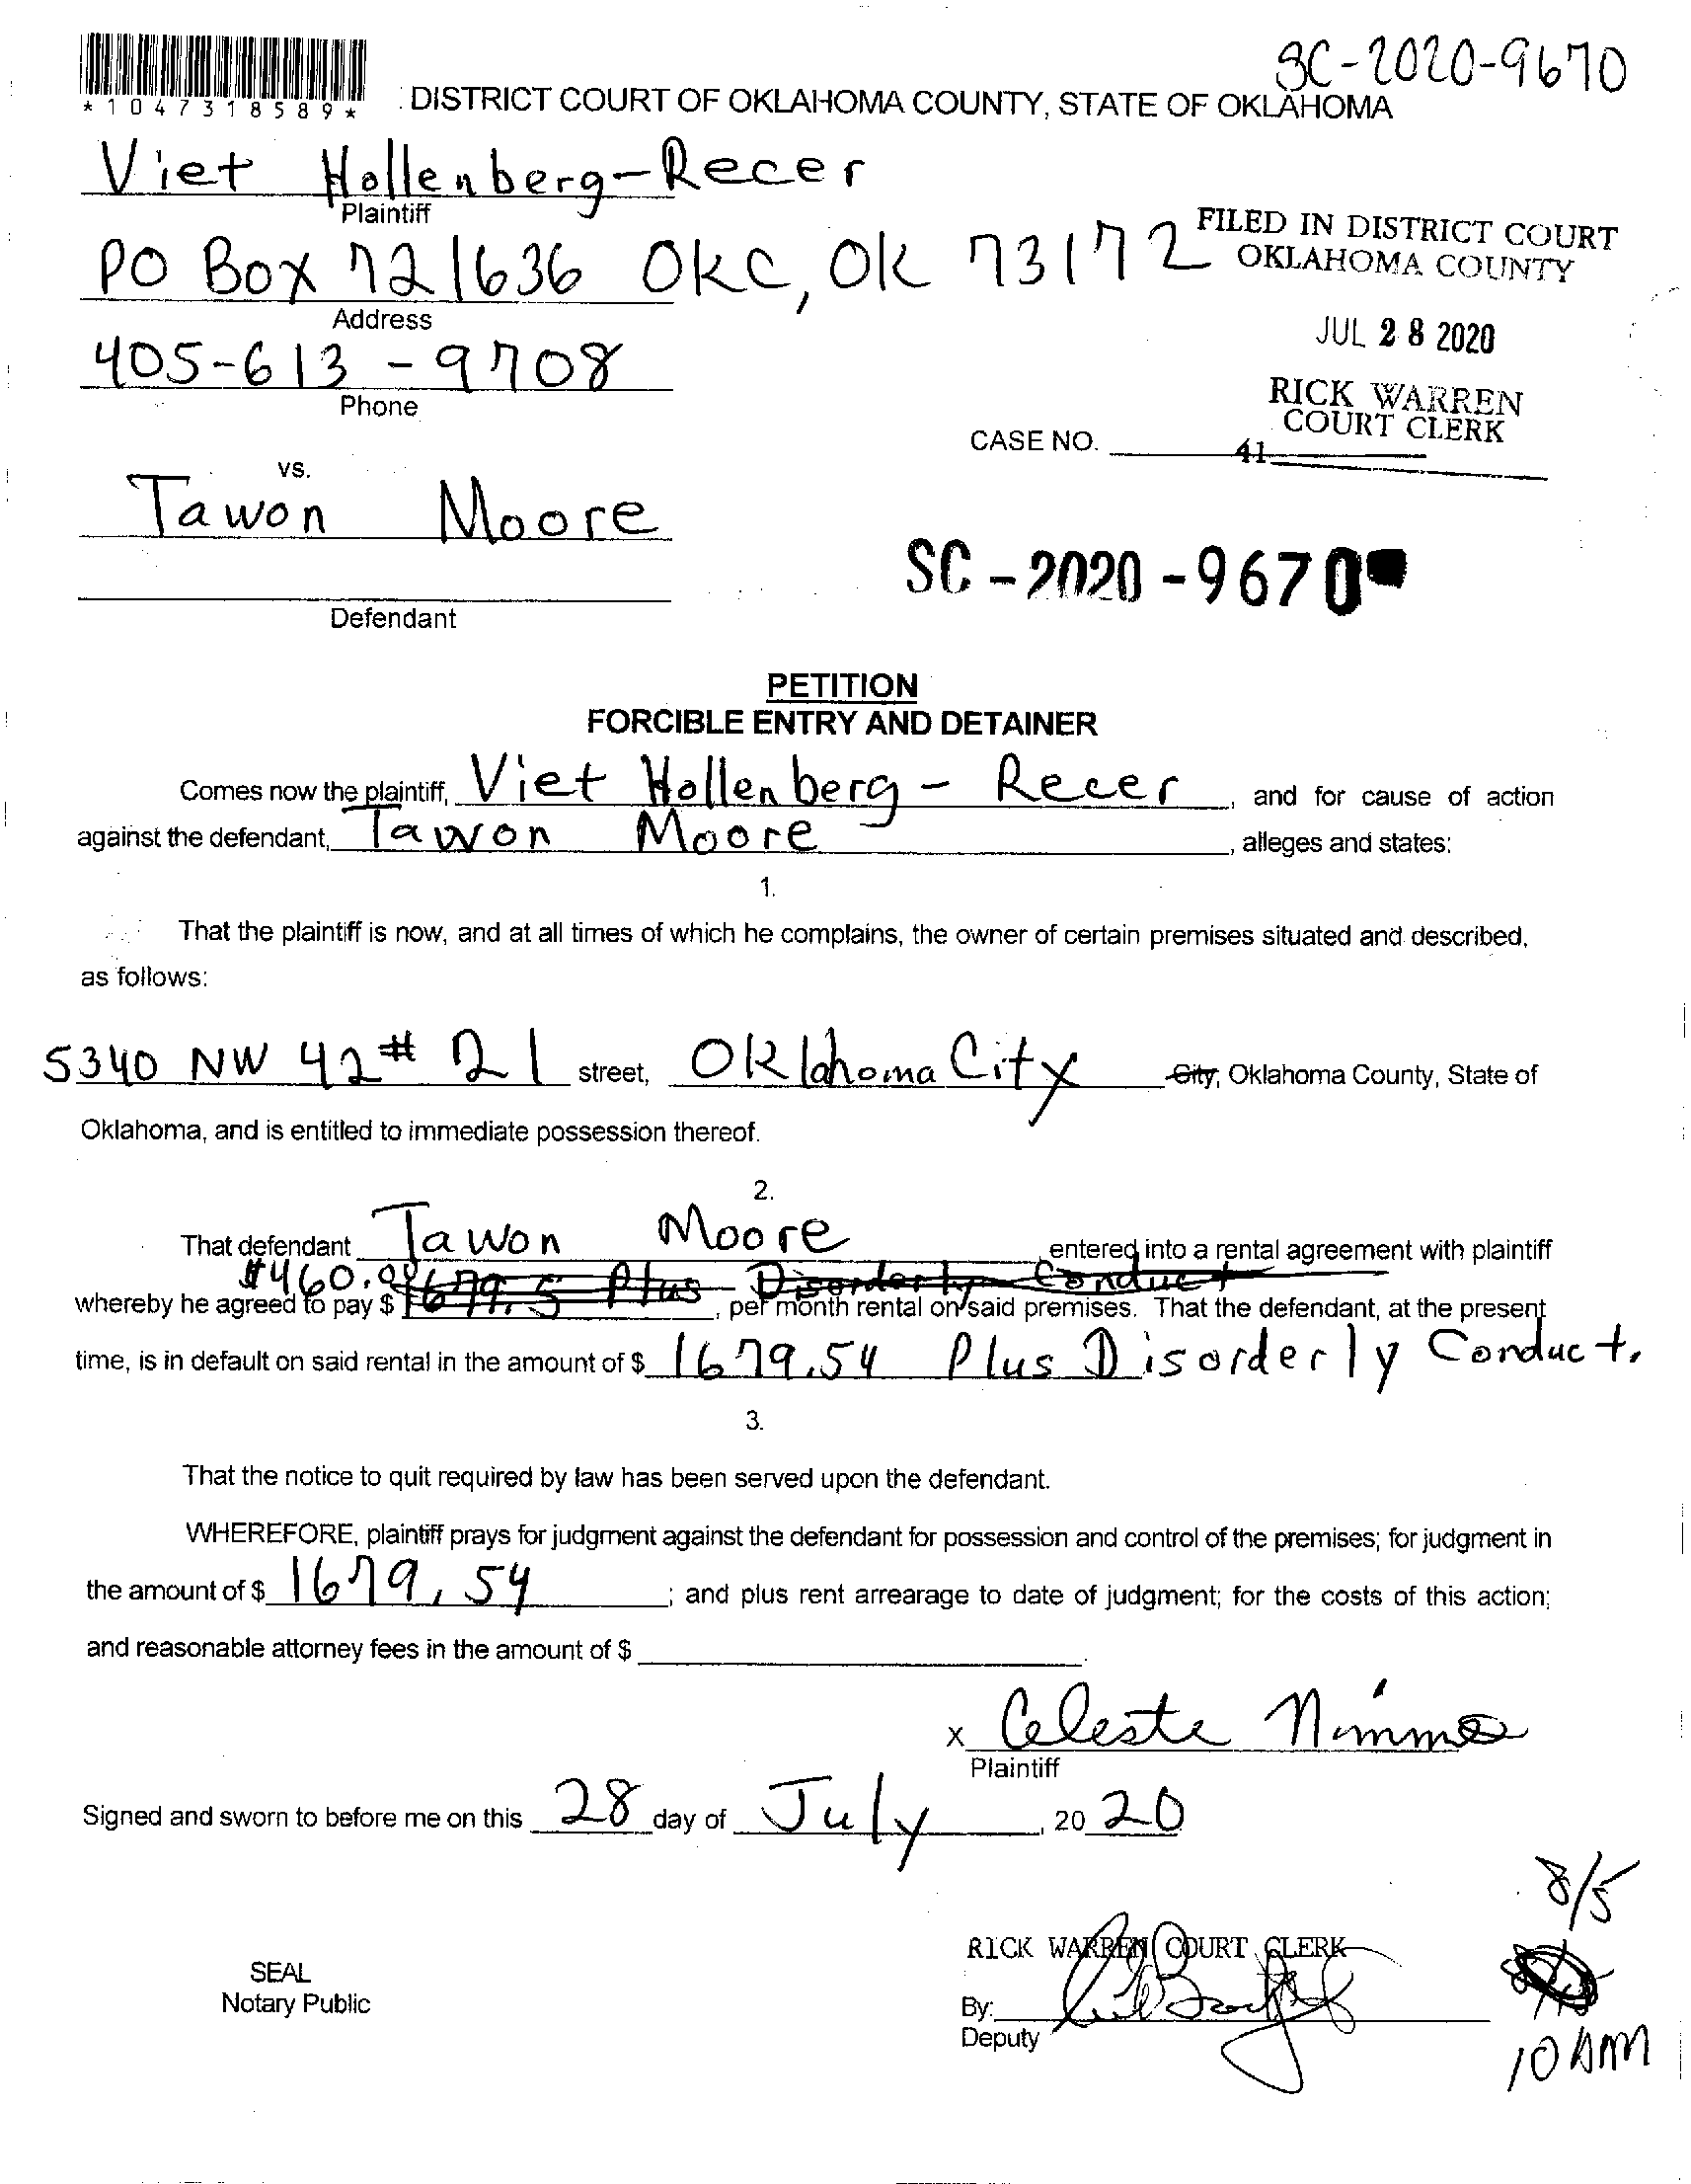 SC-2020-9670
*1047318589*
DISTRICT COURT OF OKLAHOMA COUNTY, STATE OF OKLAHOMA
Viet Hollenberg-Recer
Plaintiff
PO Box 721636 OKC, OK 73172
Address
405-613-9708
Phone
FILED IN DISTRICT COURT
OKLAHOMA COUNTY
JUL 28 2020
RICK WARREN
COURT CLERK
CASE NO.
41
vs.
Tawon Moore
SC-2020-9670
Defendant
PETITION
FORCIBLE ENTRY AND DETAINER
Comes now the plaintiff, Viet Hollenberg-Recer, and for cause of action
against the defendant, Tawon Moore, alleges and states:
1.
That the plaintiff is now, and at all times of which he complains, the owner of certain premises situated and described,
as follows:
5340 NW 42 # 21 street, Oklahoma City City, Oklahoma County, State of
Oklahoma, and is entitled to immediate possession thereof.
2.
That defendant Tawon Moore, entered into a rental agreement with plaintiff
$460.00
whereby he agreed to pay $ 1679.5 Plus Disorderly Conduct, per month rental on said premises. That the defendant, at the present
time, is in default on said rental in the amount of $ 1679.54 Plus Disorderly Conduct.
3.
That the notice to quit required by law has been served upon the defendant.
WHEREFORE, plaintiff prays for judgment against the defendant for possession and control of the premises; for judgment in
the amount of $ 1679.54; and plus rent arrearage to date of judgment; for the costs of this action;
and reasonable attorney fees in the amount of $
x Celeste Nimmo
Plaintiff
Signed and sworn to before me on this 28 day of July, 20 20
8/5
10 AM
RICK WARREN COURT CLERK
SEAL
Notary Public
By:
Deputy